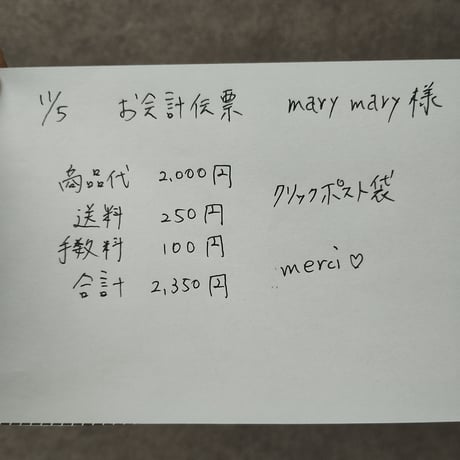 11/5 お会計伝票 mary mary 様
商品代 2,000円
クリックポスト袋
送料 250円
手数料 100円
merci♡
合計 2,350円